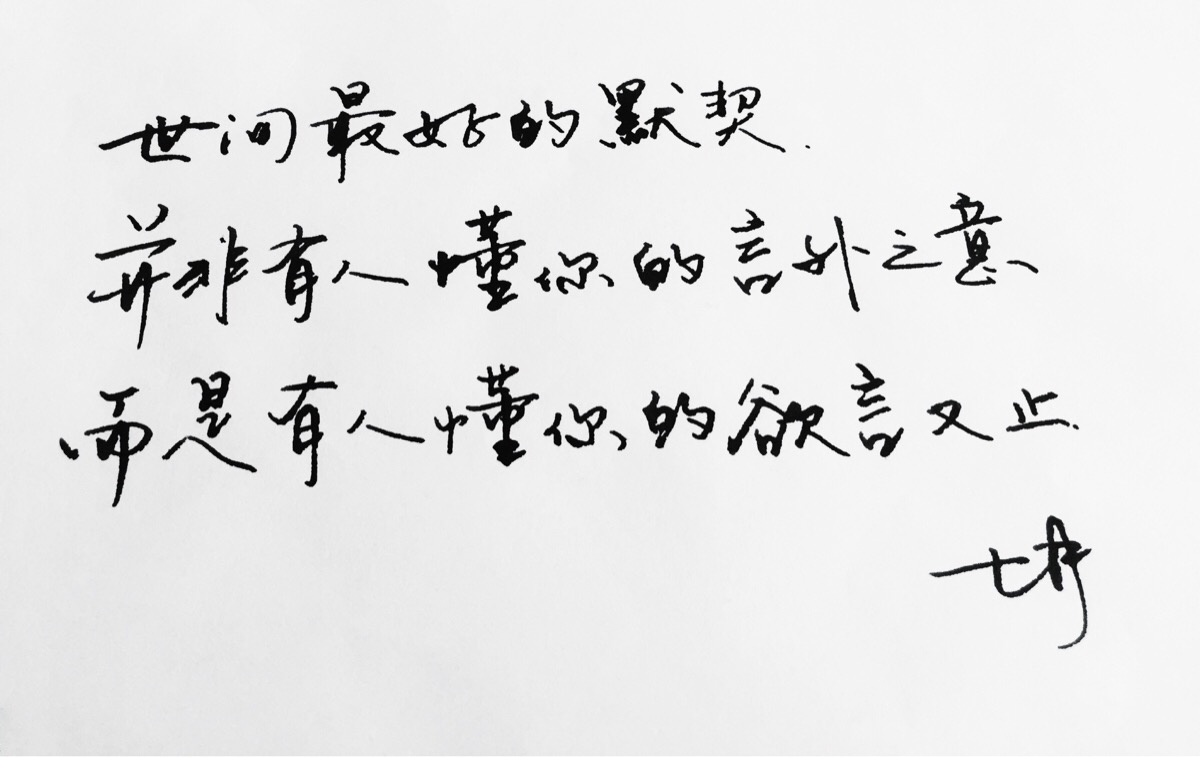 世间最好的默契.
并非有人懂你的言外之意
而是有人懂你的欲言又止.